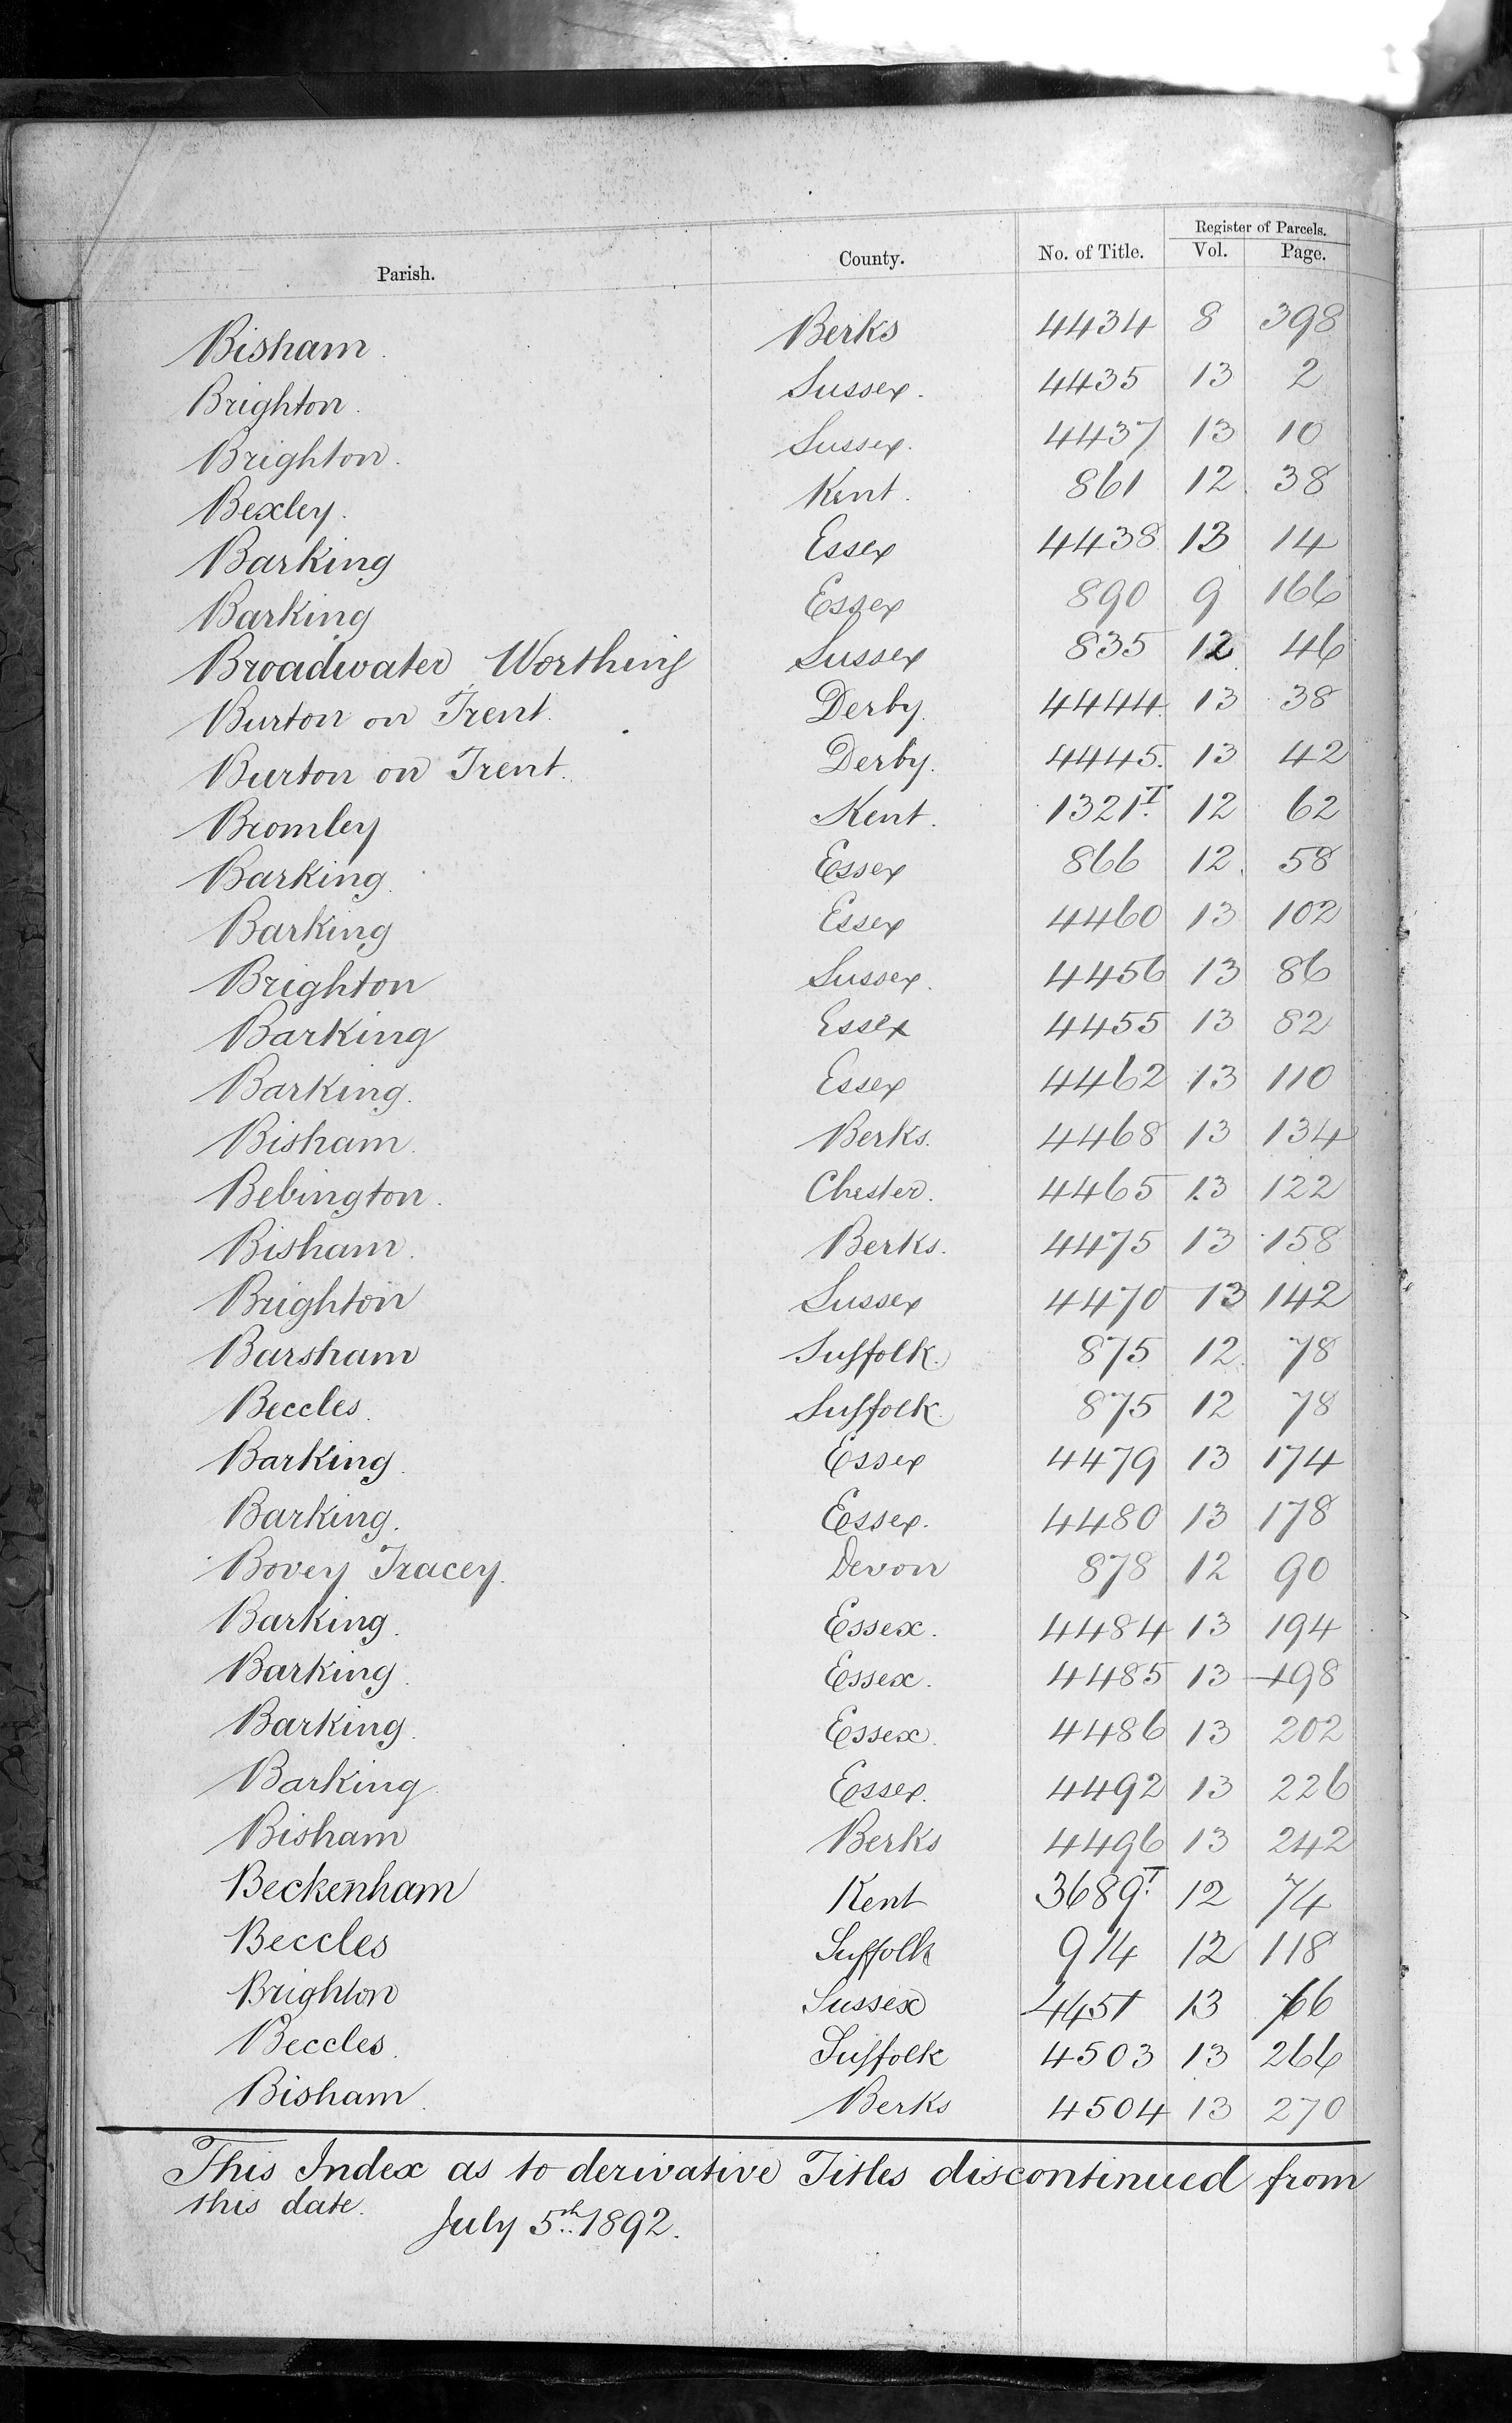 Parish. County. No. of Title. Register of Parcels. Vol. Page.
Bisham. Berks 4434 8 398
Brighton. Sussex. 4435 13 2
Brighton. Sussex. 4437 13 10
Bexley. Kent. 861 12 38
Barking Essex 4438 13 14
Barking Essex 890 9 166
Broadwater Worthing Sussex 835 12 46
Burton on Trent. Derby. 4444. 13 38
Burton on Trent. Derby. 4445. 13 42
Bromley Kent. 1321.T 12 62
Barking. Essex 866 12. 58
Barking Essex 4460 13 102
Brighton Sussex. 4456 13 86
Barking Essex 4455 13 82
Barking. Essex 4462 13 110
Bisham. Berks. 4468 13 134
Bebington. Chester. 4465 13 122
Bisham. Berks. 4475 13 158
Brighton Sussex 4470 13 142
Barsham Suffolk. 875 12. 78
Beccles. Suffolk. 875 12 78
Barking. Essex 4479 13 174
Barking. Essex. 4480 13 178
Bovey Tracey. Devon 878 12 90
Barking. Essex. 4484 13 194
Barking. Essex. 4485 13 198
Barking. Essex. 4486 13 202
Barking. Essex. 4492 13 226
Bisham Berks 4496 13 242
Beckenham Kent 3689.T 12 74
Beccles Suffolk 914 12 118
Brighton Sussex 4451 13 66
Beccles. Suffolk 4503 13 266
Bisham. Berks 4504 13 270
This Index as to derivative Titles discontinued from
this date.
July 5th. 1892.